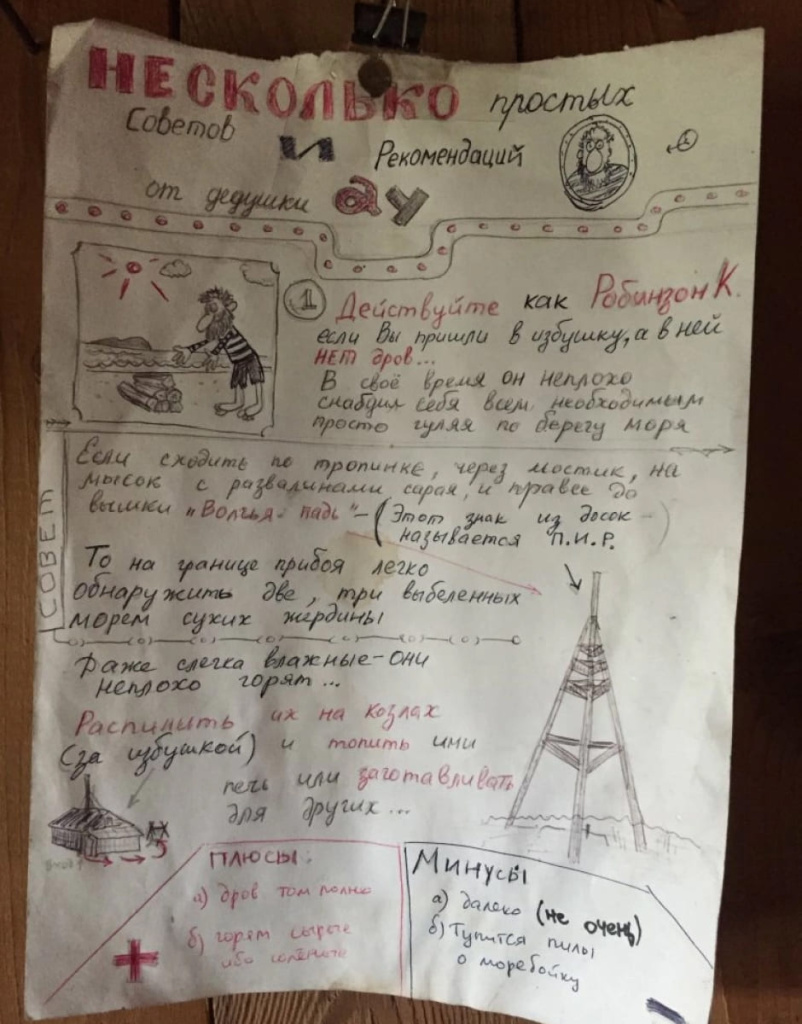 НЕСКОЛЬКО простых
Советов И Рекомендаций
от дедушки АУ
1 Действуйте как Робинзон К.
если Вы пришли в избушку, а в ней
НЕТ дров...
В своё время он неплохо
снабдил себя всем необходимым
просто гуляя по берегу моря
СОВЕТ
Если сходить по тропинке, через мостик, на
мысок с развалинами сарая, и правее до
вышки "Волчья падь" - (Этот знак из досок -
называется П.И.Р.)
То на границе прибоя легко
обнаружить две, три выбеленных
морем сухих жердины
Даже слегка влажные - они
неплохо горят...
Распилить их на козлах
(за избушкой) и топить ими
печь или заготавливать
для других...
Плюсы:
а) дров там полно
б) горят сырые
ибо солёные
Минусы
а) далеко (не очень)
б) Тупятся пилы
о моребойку